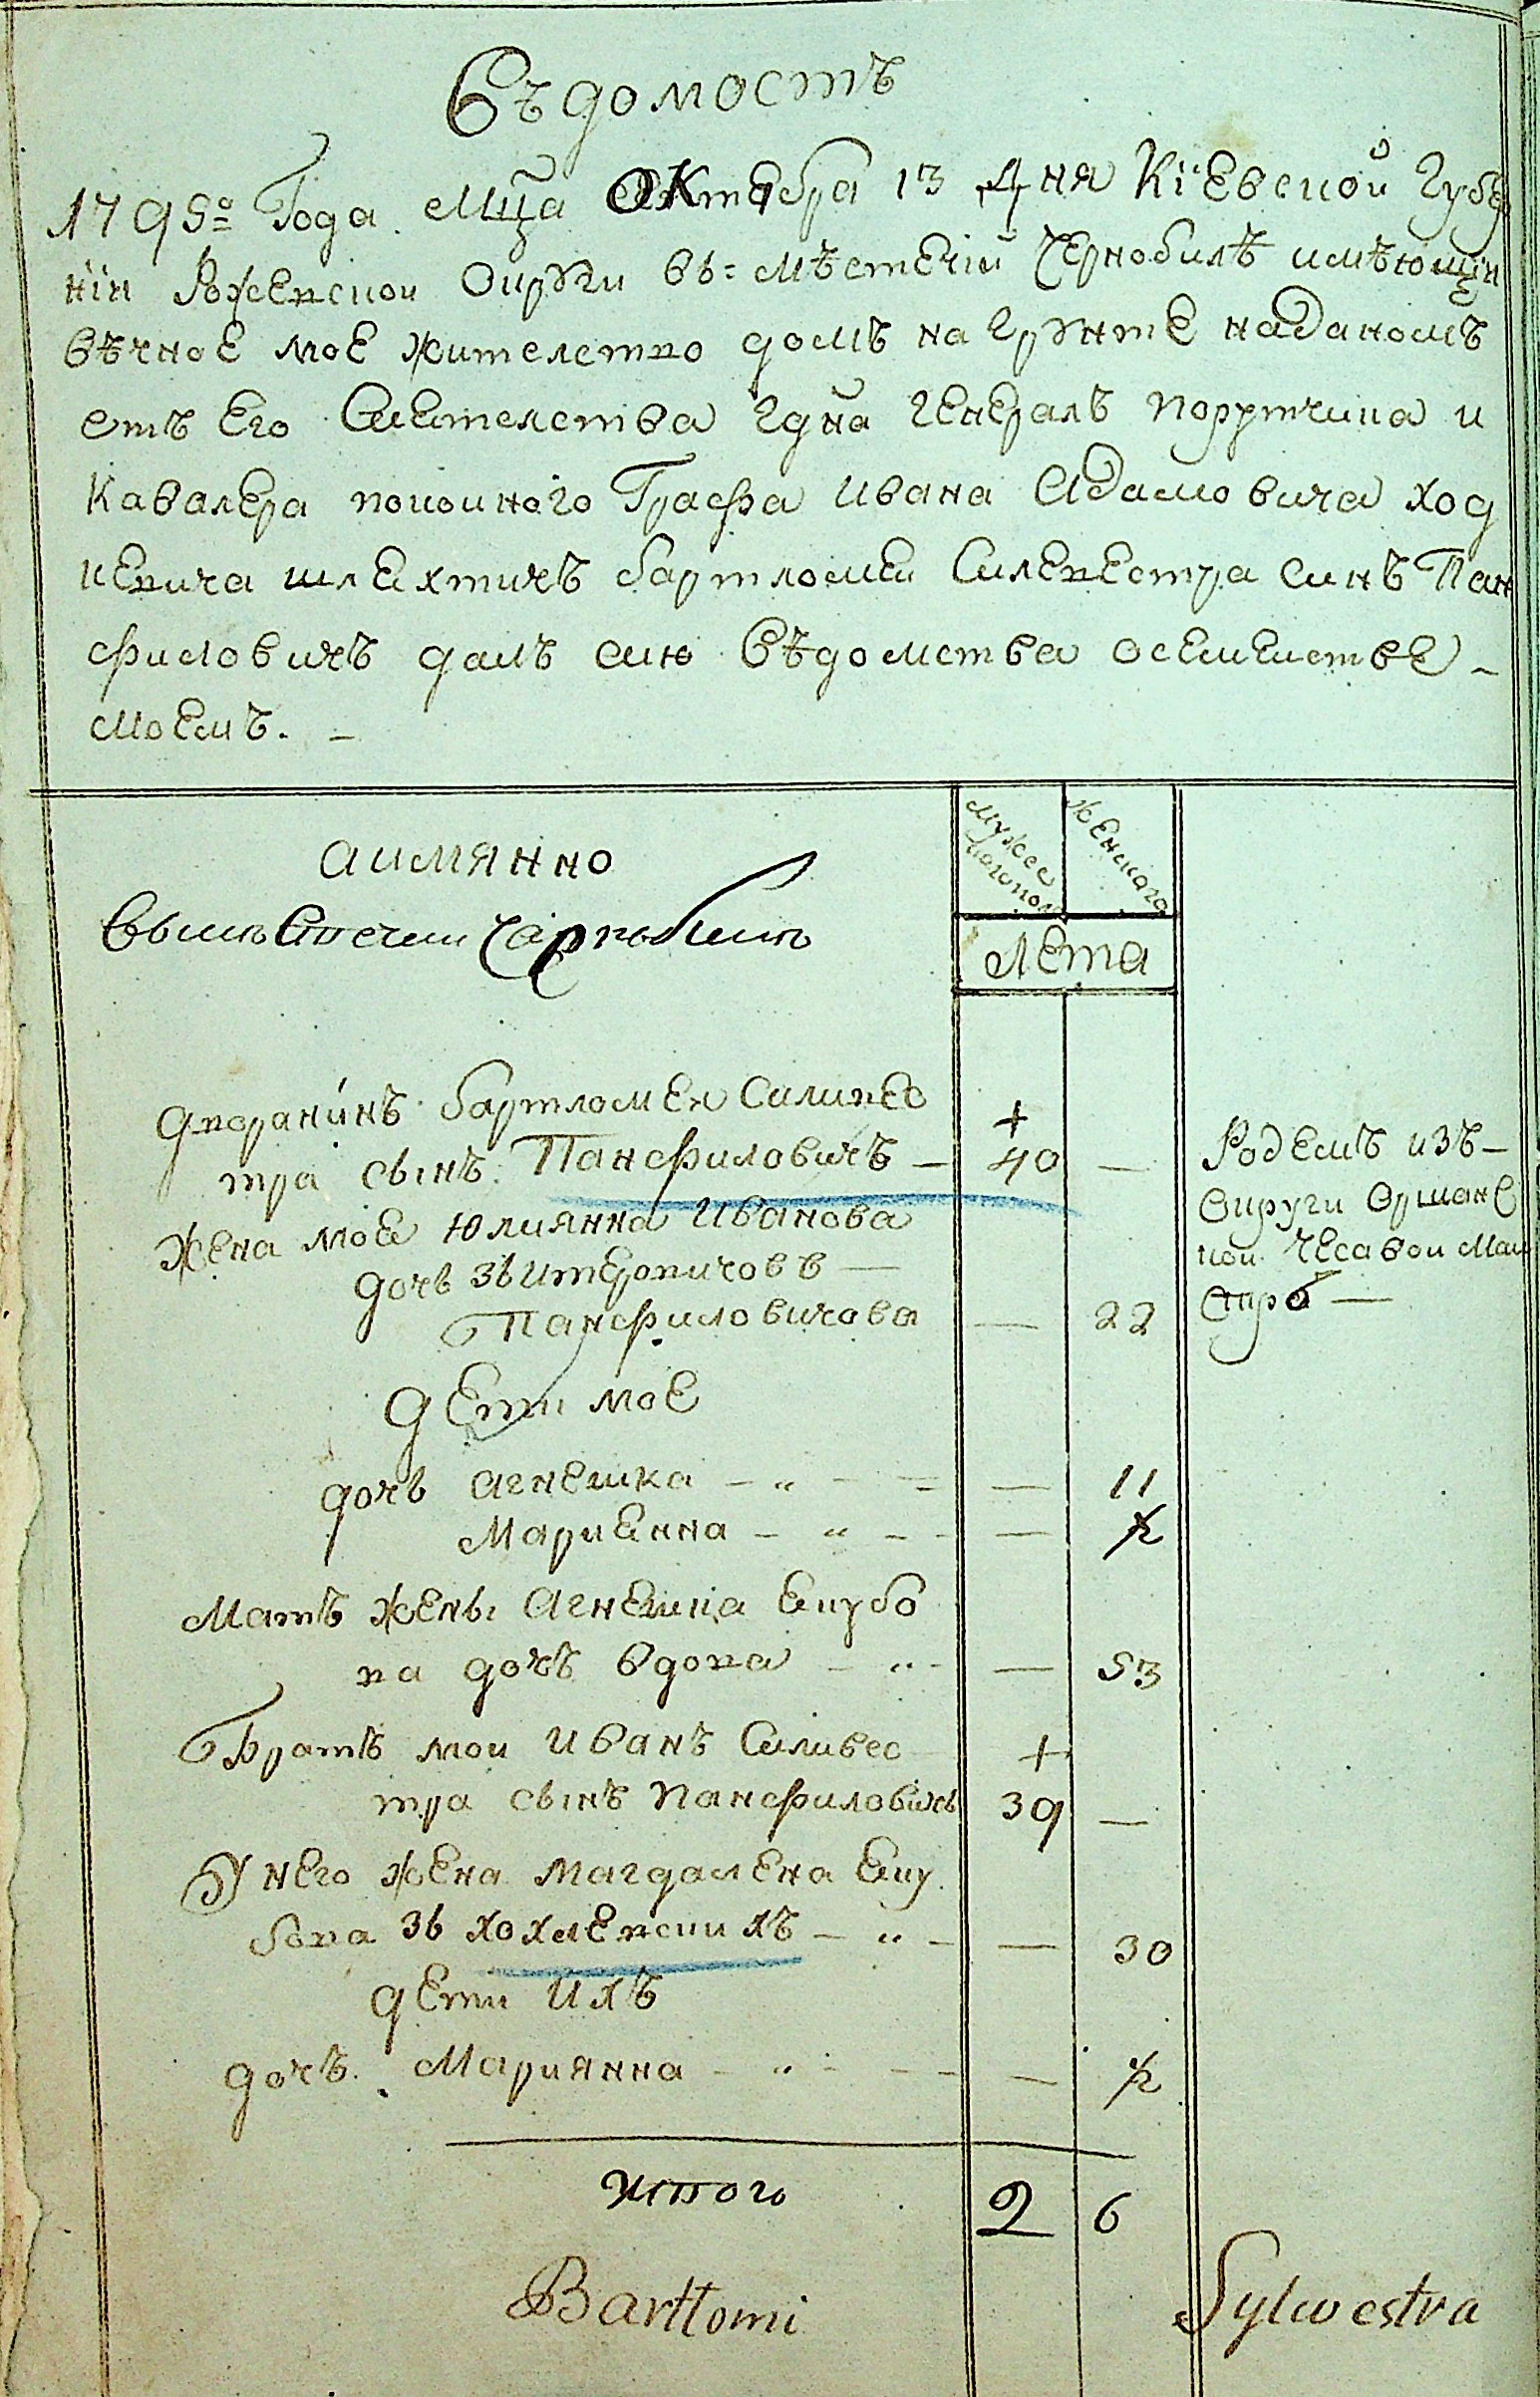 Вѣдомостъ
1795го Года Мца Октебра 13 Дня Кіевской Губѣр
ніи Окружи въ= мѣстечіи Чернобилѣ имѣющіи
вѣчное мое жителство домъ на грунте наданомъ
отъ Его Сиетелства Гдна Генералъ Порутчика и
Кавалера покоиного Графа Ивана Адамовича Ход
кевича шлехтичъ бартломеи Силвестра Синъ Пан
филовичъ далъ сию Вѣдомства осемеистве –
моемъ. –
аимянно
мужес
когопола
женскаго
Лета
дворанинъ бартломеи Силивес
тра сынъ Панфиловичъ – + 40 –
Родемъ изъ –
Округи Оршанс
кои
Жена мое Юлиянна Иванова
дочь зъ
Панфиловичова — 22
Дети мое
дочь Агнешка – „ – — 11
Мариенна – „ – — 1/2
Мать жены Агнешка Якубо
ва дочъ вдова – „ – — 53
Братъ мои Иванъ Силивес +
тра сынъ Панфиловичъ 39 —
У него жена Магдалена Яку
бова зъ хохлевскихъ – „ – — 30
дети ихъ
дочъ. Мариянна – „ – — 1/2
Итого 2 6
Barttomi Sylwestra